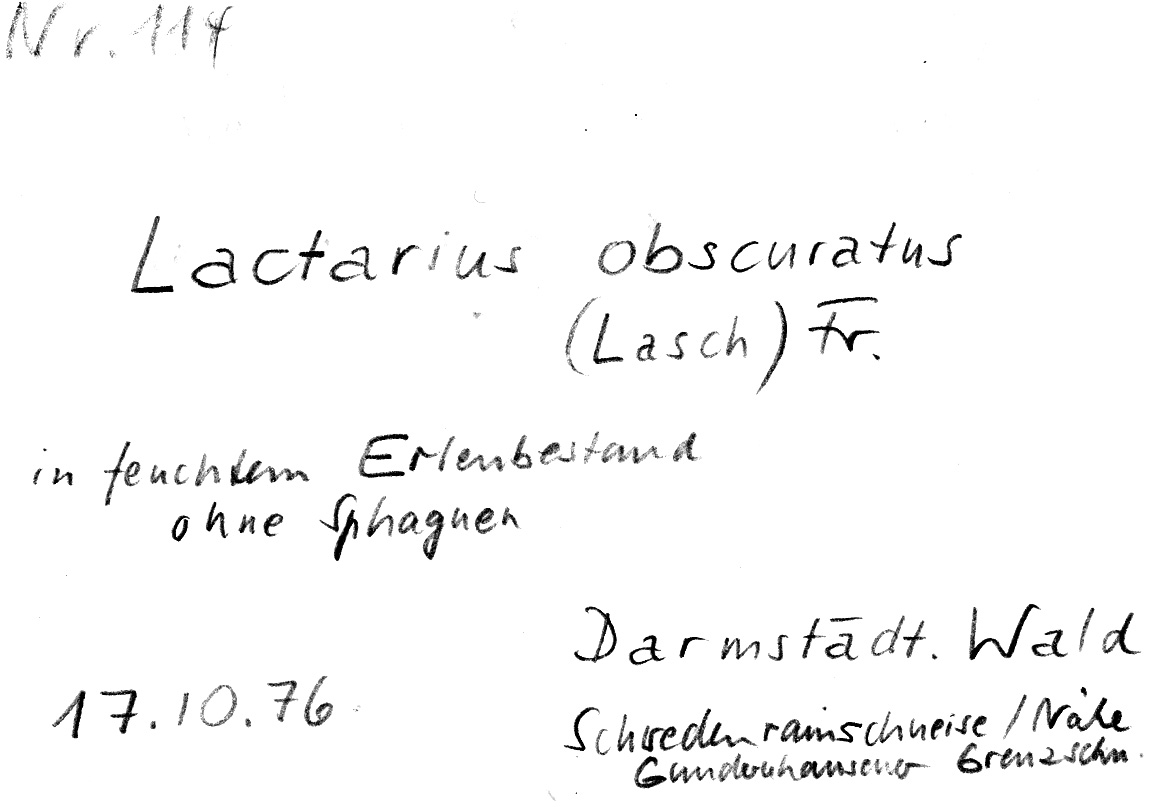 Nr. 114
Lactarius obscuratus
(Lasch) Fr.
in feuchtem Erlenbestand
ohne Sphagnen
Darmstädt. Wald
17.10.76
Schwedenrainschneise / Nähe
Gundernhausener Grenzschn.